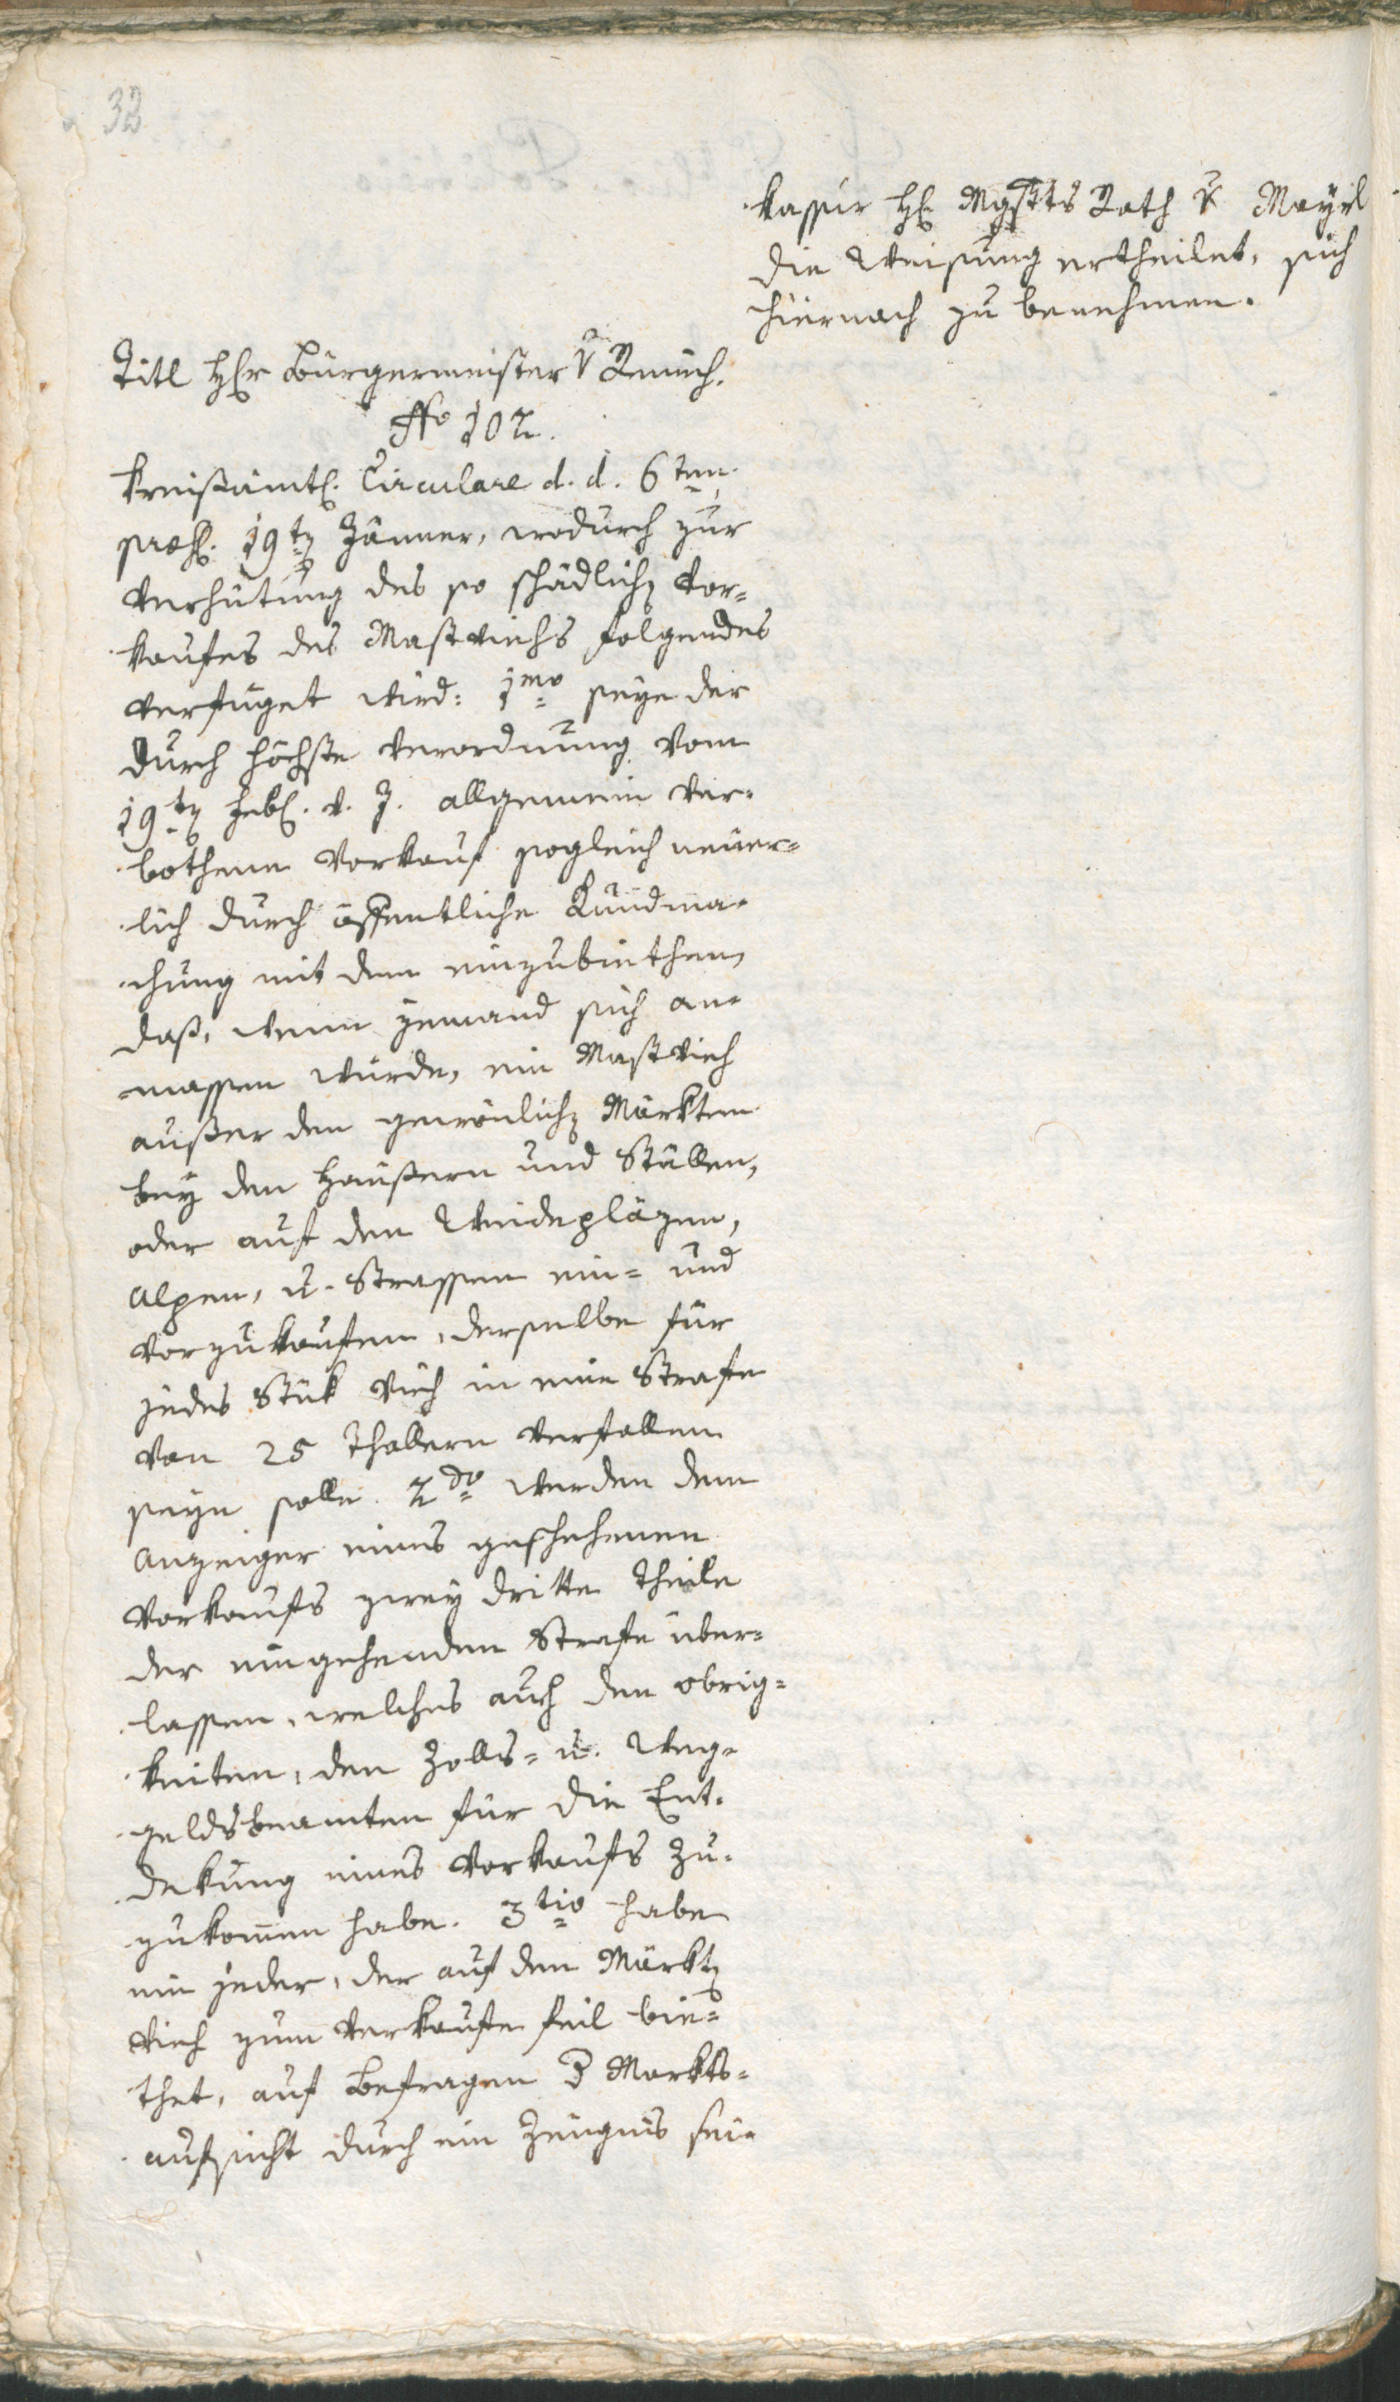 32
kassier H. Mgstts Rath v Mayrl
die Weisung ertheilet, sich
hiernach zu benehmen.
Titl Herr Bürgermeister v
No 102.
Kreißämtl. Circulare d. d. 6ten
praes. 19ten Jänner, wodurch zur
Verhütung des so schädlichen Vor¬
kaufes des Mastviehs folgendes
verfüget wird: 1mo seye der
durch höchste Verordnung vom
19ten v. J. allgemein ver¬
bothene Vorkauf sogleich neuer¬
lich durch öffentliche Kundma¬
chung mit dem einzubiethen,
daß, wenn jemand sich an¬
massen würde, ein Mastvieh
außer den gewönlichen Märkten
bey den Häußern und Ställen,
oder auf den Weidepläzen,
Alpen, u. Strassen ein- und
vorzukaufen, derselbe für
jedes Stük Vieh in eine Strafe
von 25 Thallern verfallen
seyn solle. 2do werden dem
Anzeiger eines geschehenen
Vorkaufs zwey dritte Theile
der eingehenden Strafe über¬
lassen, welches auch den Obrig¬
keiten, den Zolls- u. Weg¬
geldsbeamten für die Ent¬
dekung eines Vorkaufs zu¬
zukommen habe. 3tio habe
ein jeder, der auf den Märkten
Vieh zum Verkaufe feil bie¬
thet, auf Befragen der Markts¬
aufsicht durch ein Zeugnis sei¬